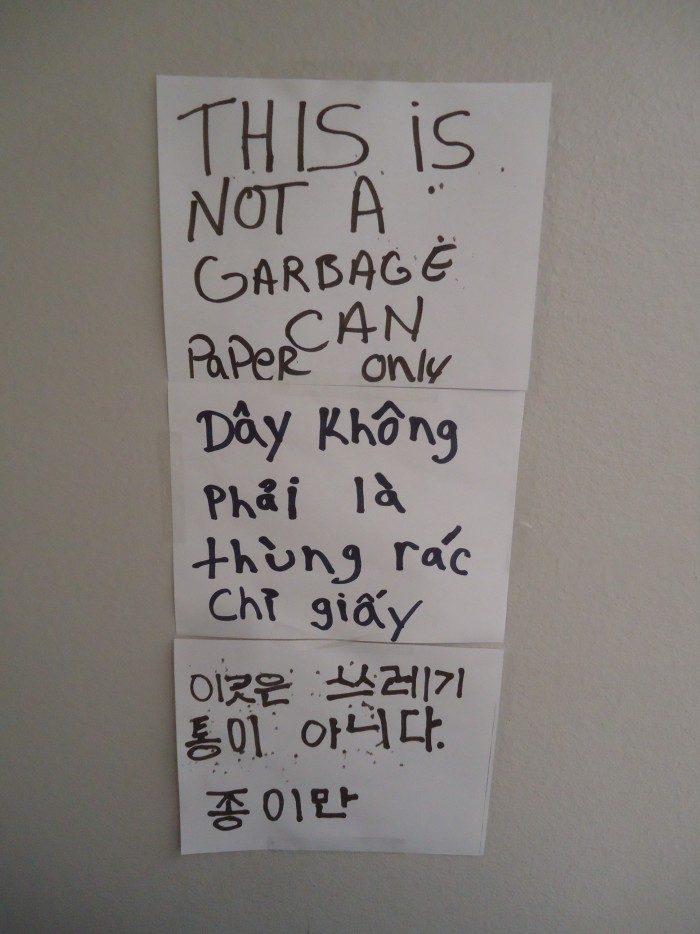 THIS iS
NOT A
GARBAGE
CAN
PaPeR only
Dây Không
Phải là
thùng rác
Chỉ giấy
이곳은 쓰레기
통이 아니다.
종이만